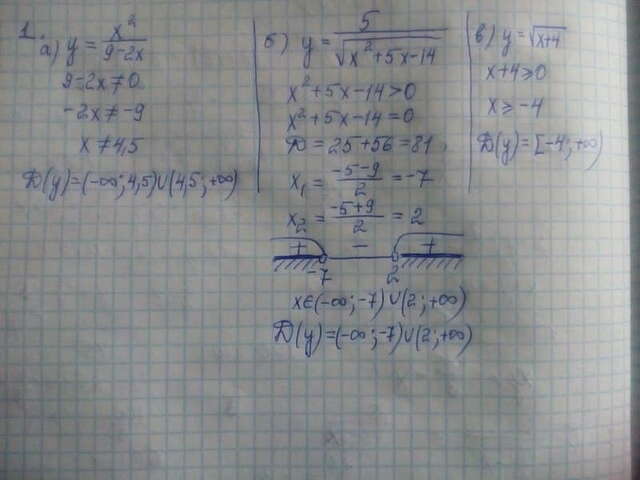 1.
а) y = x²/(9-2x)
9-2x≠0
-2x≠-9
x≠4,5
D(y)=(-∞;4,5)∪(4,5;+∞)
б) y = 5/√(x²+5x-14)
x²+5x-14>0
x²+5x-14=0
D=25+56=81
x₁ = (-5-9)/2 = -7
x₂ = (-5+9)/2 = 2
+ − +
-7 2
x∈(-∞;-7)∪(2;+∞)
D(y)=(-∞;-7)∪(2;+∞)
в) y=√(x+4)
x+4≥0
x≥-4
D(y)=[-4;+∞)